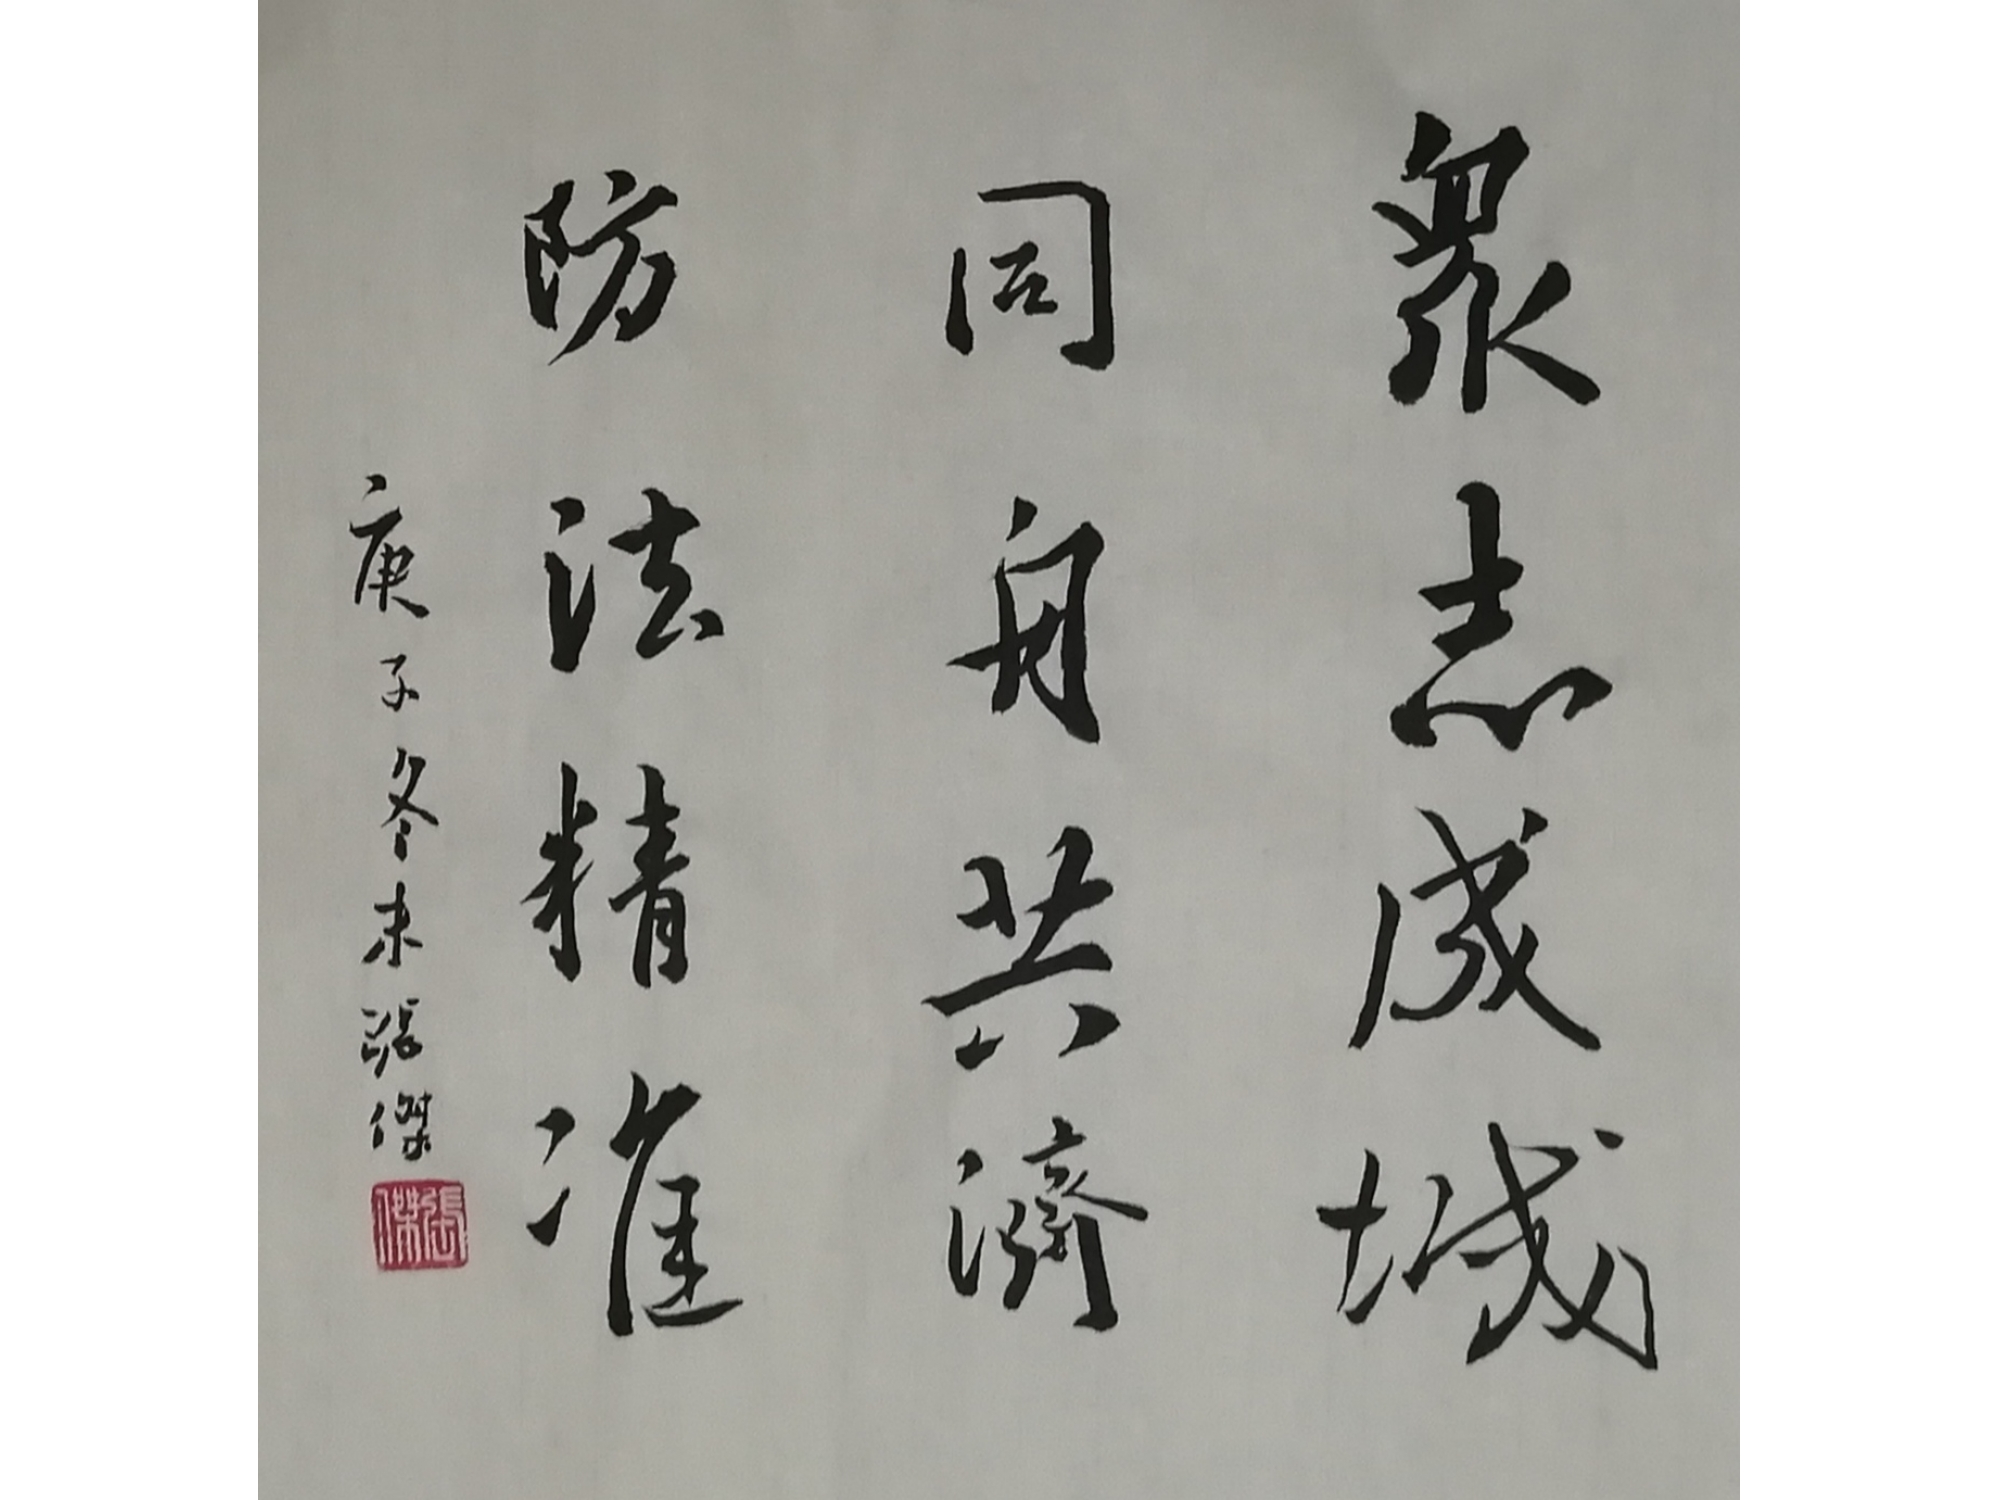 眾志成城
同舟共濟
防法精准
庚子冬末張傑
張傑